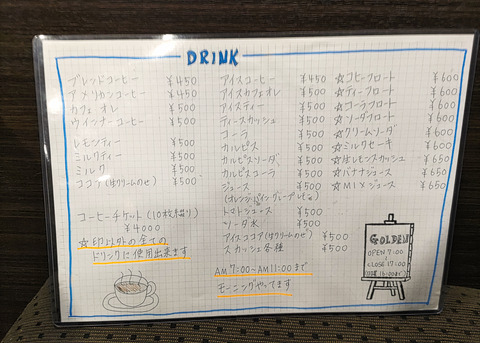 DRINK
ブレッドコーヒー ¥450
アメリカンコーヒー ¥450
カフェオレ ¥500
ウインナーコーヒー ¥500
レモンティー ¥500
ミルクティー ¥500
ミルク ¥500
ココア(生クリームのせ) ¥500
コーヒーチケット(10枚綴り)
¥4000
☆印以外の全ての
ドリンクに使用出来ます
アイスコーヒー ¥450
アイスカフェオレ ¥500
アイスティー ¥500
ティースカッシュ ¥500
コーラ ¥500
カルピス ¥500
カルピスソーダ ¥500
カルピスコーラ ¥500
ジュース ¥500
トマトジュース ¥500
ソーダ水 ¥500
アイスココア(生クリームのせ) ¥500
スカッシュ各種 ¥500
AM7:00~AM11:00まで
モーニングやってます
☆コーヒーフロート ¥600
☆ティーフロート ¥600
☆コーラフロート ¥600
☆ソーダフロート ¥600
☆クリームソーダ ¥600
☆ミルクセーキ ¥600
☆生レモンスカッシュ ¥650
☆バナナジュース ¥650
☆MIXジュース ¥650
GOLDEN
OPEN 7:00
CLOSE 17:00